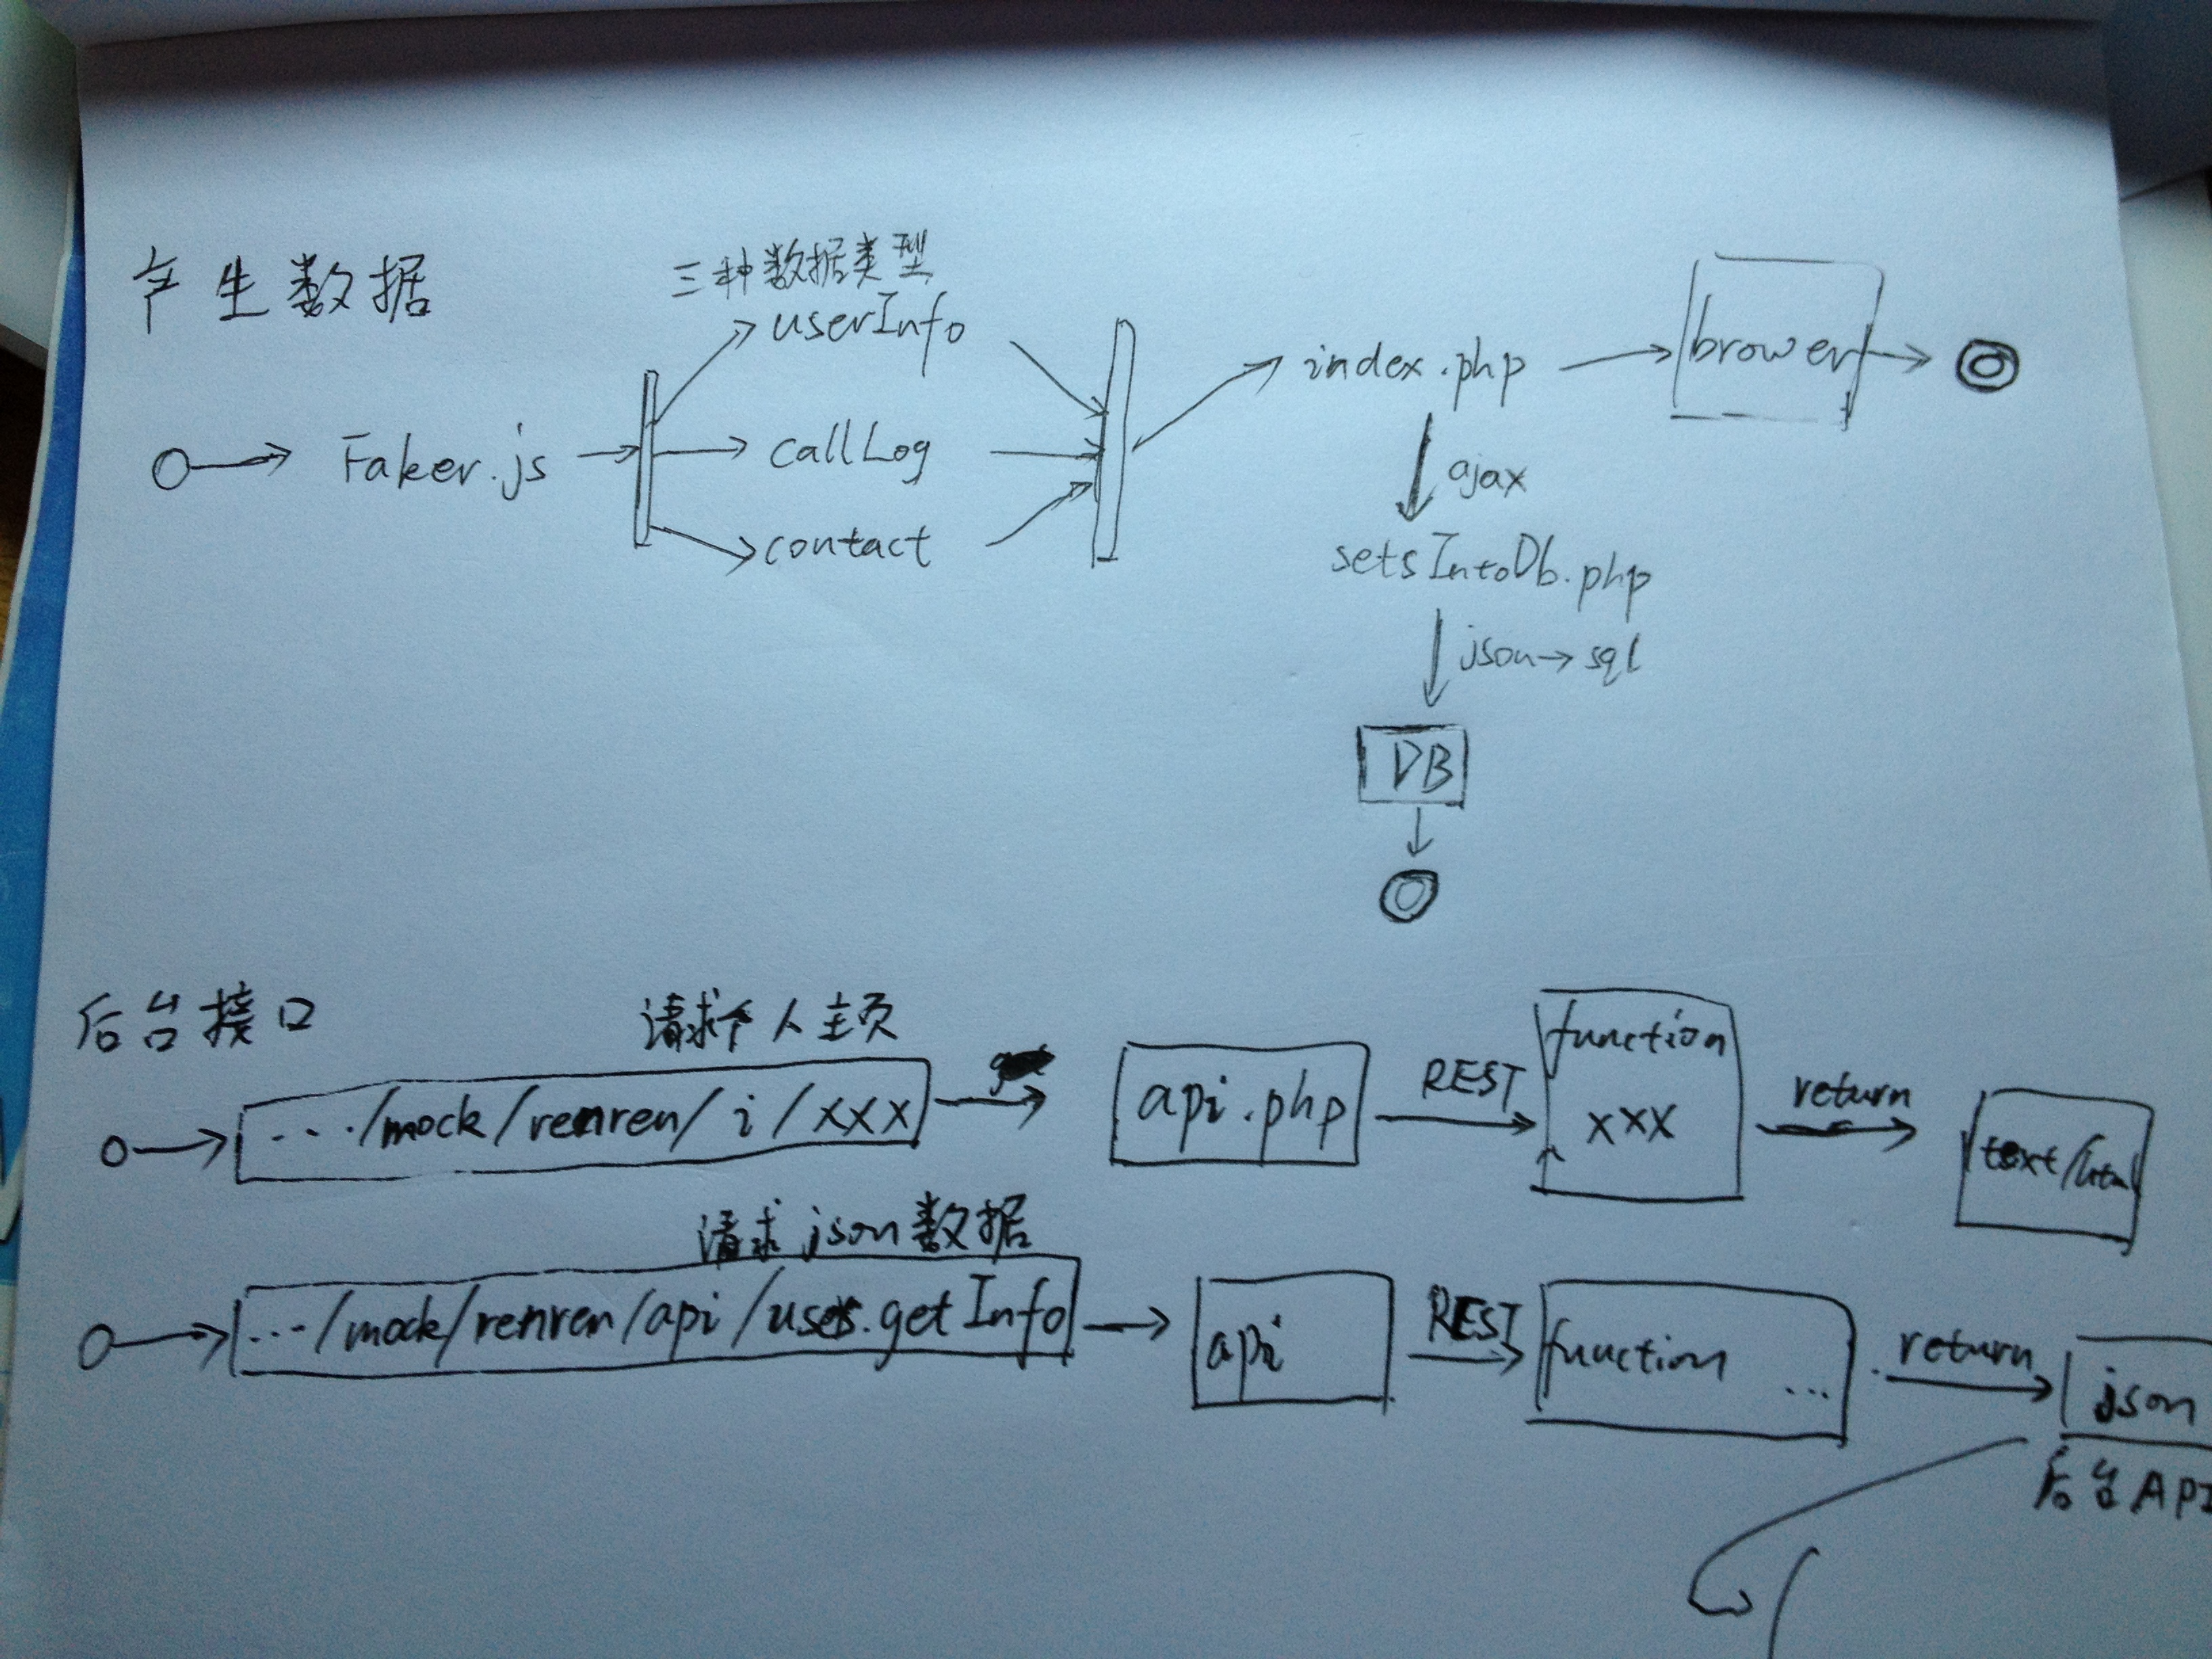 产生数据
三种数据类型
userInfo
Faker.js
callLog
contact
index.php
brower
ajax
setsIntoDb.php
json→sql
DB
后台接口
请求个人主页
.../mock/renren/i/xxx
api.php
REST
function
xxx
return
text/html
请求json数据
.../mock/renren/api/users.getInfo
api
REST
function ...
return
json
后台API